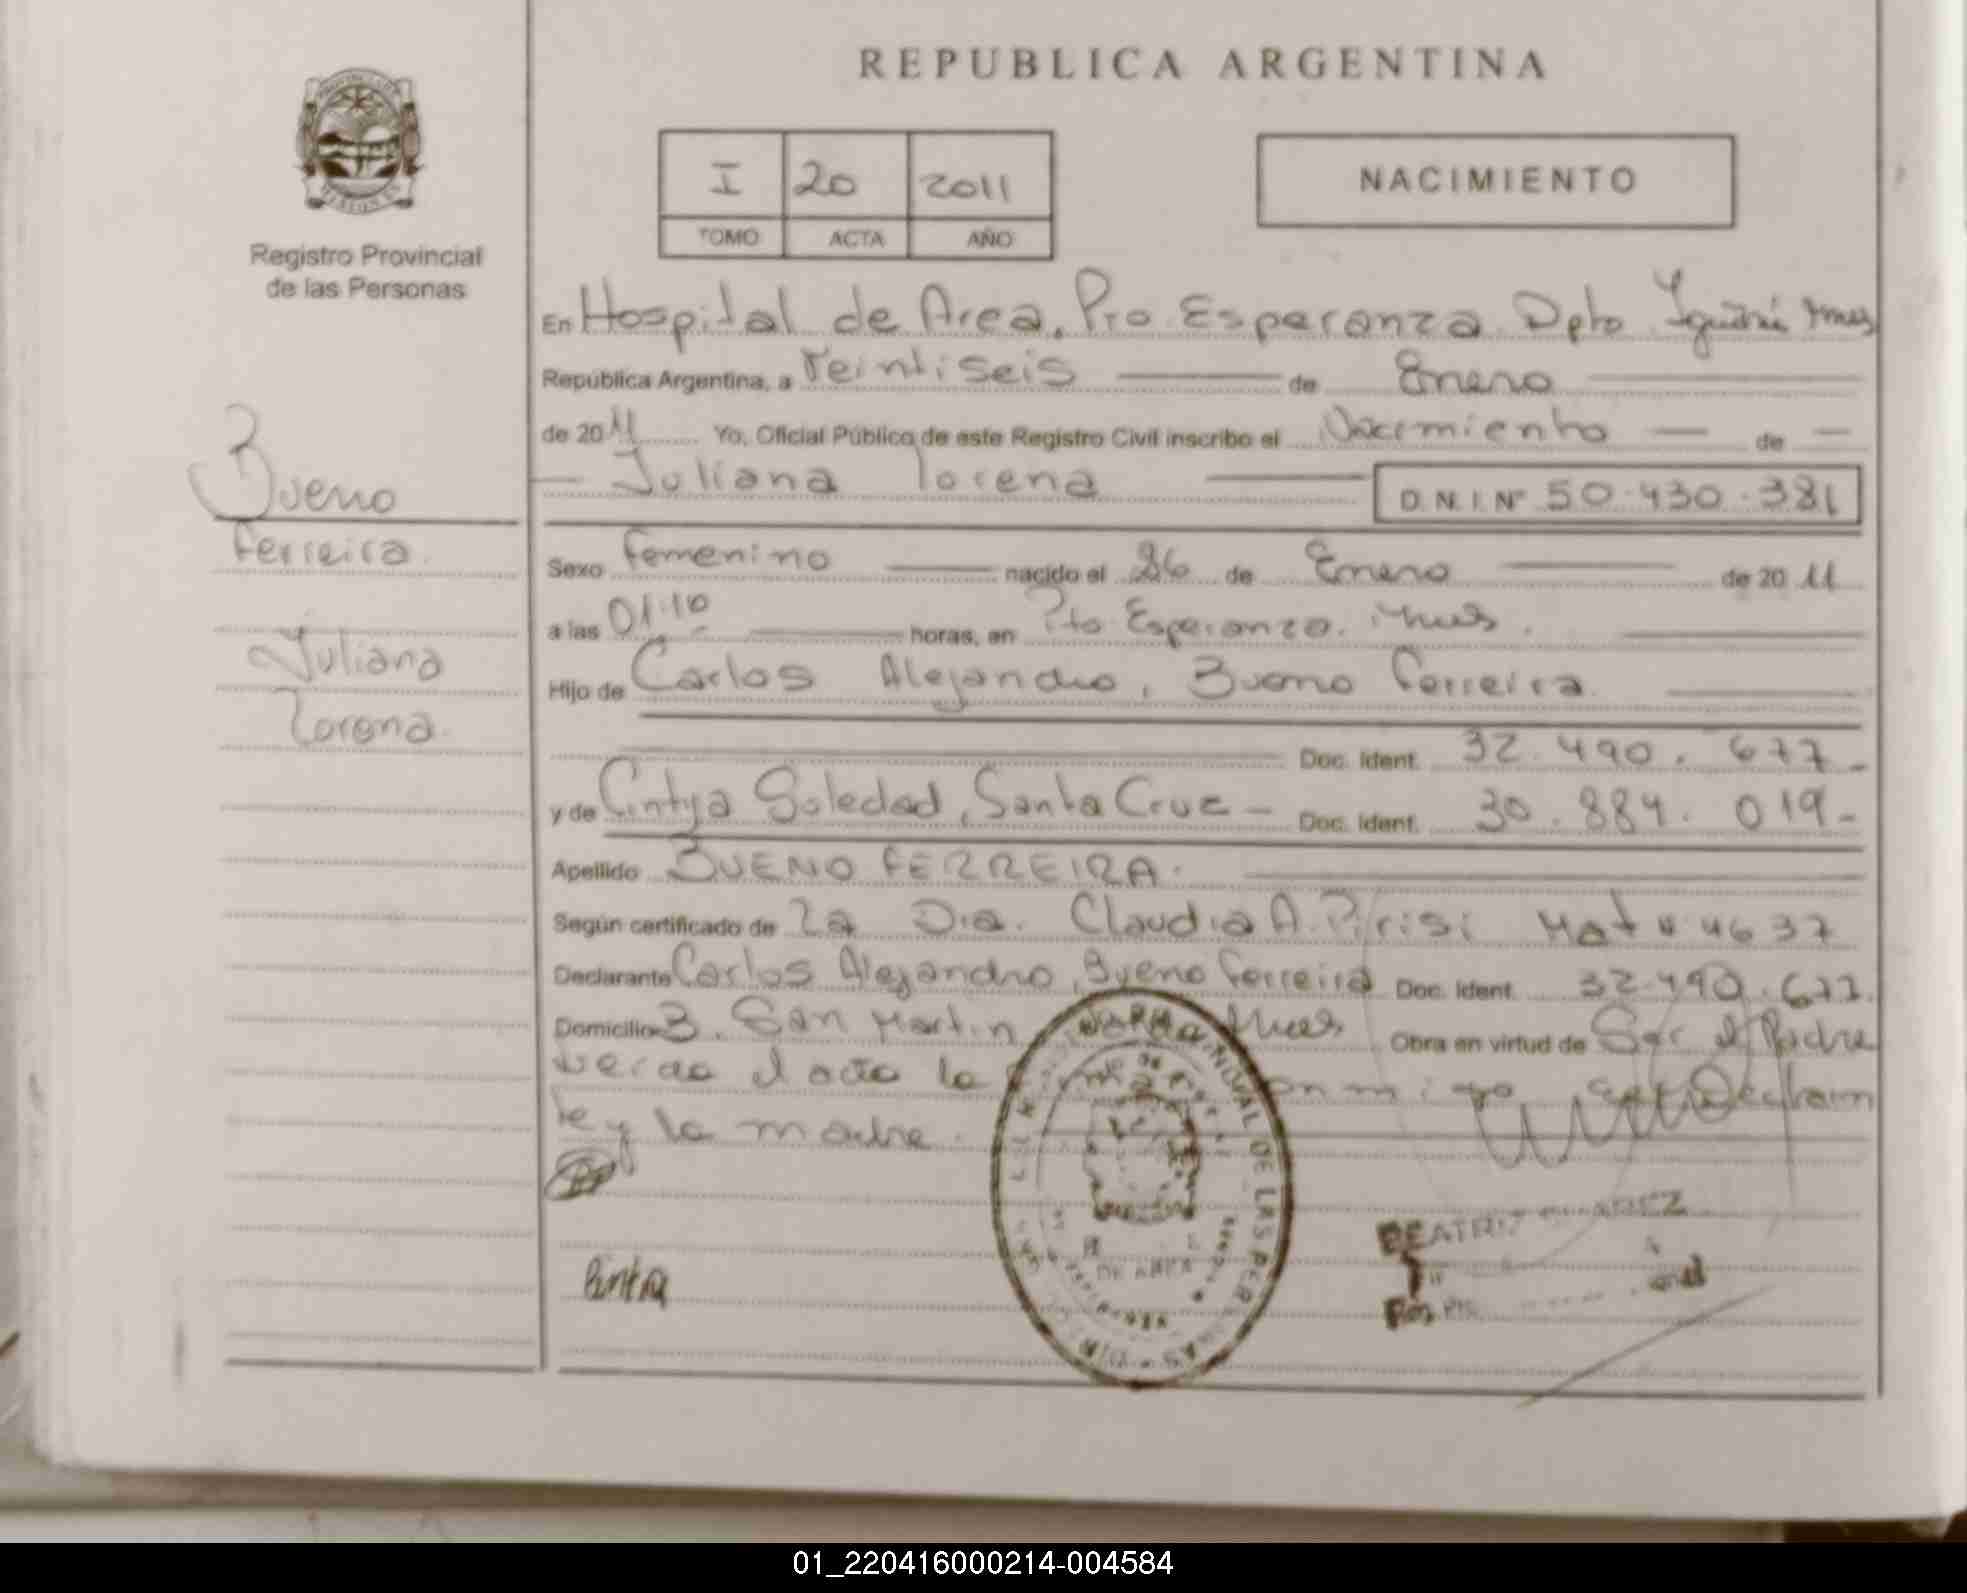 REPUBLICA ARGENTINA
Registro Provincial
de las Personas
I 20 2011
TOMO ACTA AÑO
NACIMIENTO
En Hospital de Area, Pto Esperanza Dpto Iguazú Mnes
República Argentina, a Veintiseis de Enero
de 2011 Yo, Oficial Público de este Registro Civil inscribo el Nacimiento de
Juliana Lorena D.N.I. Nº 50.430.381
Bueno
Ferreira
Juliana
Lorena
Sexo femenino nacido el 26 de Enero de 2011
a las 01:10 horas, en Pto Esperanza. Mnes.
Hijo de Carlos Alejandro, Bueno Ferreira
Doc. Ident. 32.490.677-
y de Cintya Soledad, Santa Cruz - Doc. Ident. 30.884.019-
Apellido BUENO FERREIRA.
Según certificado de La Dra. Claudia A. Pirisi Mat Nº 4637
Declarante Carlos Alejandro, Bueno Ferreira Doc. Ident. 32.490.677.
Domicilio B. San Martin Mnes Obra en virtud de Ser el Padre
el acta la conmigo
te y la madre.
BEATRIZ
DE LAS PER
01_220416000214-004584